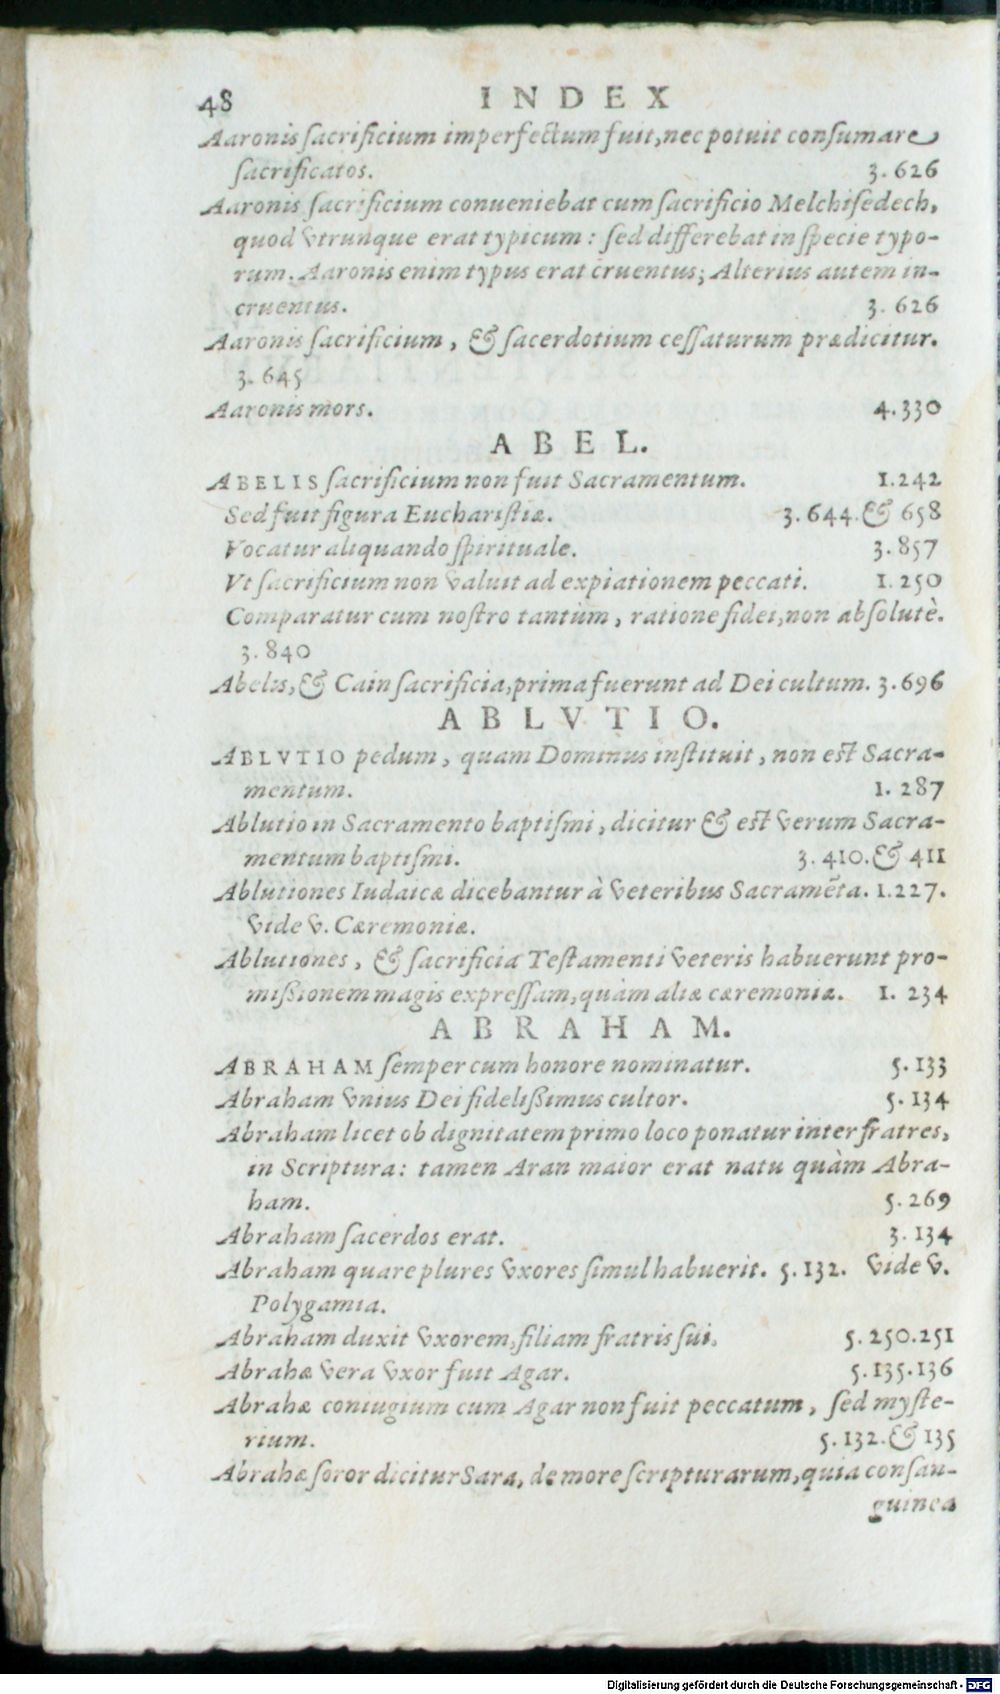 48 INDEX
Aaronis sacrificium imperfectum fuit, nec potuit consumare
sacrificatos. 3. 626
Aaronis sacrificium conueniebat cum sacrificio Melchisedech,
quod vtrunque erat typicum: sed differebat in specie typo-
rum. Aaronis enim typus erat cruentus; Alterius autem in-
cruentus. 3. 626
Aaronis sacrificium, & sacerdotium cessaturum prædicitur.
3. 645
Aaronis mors. 4.330
ABEL.
ABELIS sacrificium non fuit Sacramentum. 1.242
Sed fuit figura Eucharistiæ. 3. 644. & 658
Vocatur aliquando spirituale. 3.857
Vt sacrificium non valuit ad expiationem peccati. 1. 250
Comparatur cum nostro tantùm, ratione fidei, non absolutè.
3. 840
Abelis, & Cain sacrificia, prima fuerunt ad Dei cultum. 3.696
ABLVTIO.
ABLVTIO pedum, quam Dominus instituit, non est Sacra-
mentum. 1. 287
Ablutio in Sacramento baptismi, dicitur & est verum Sacra-
mentum baptismi. 3. 410. & 411
Ablutiones Iudaicæ dicebantur à veteribus Sacramẽta. 1.227.
vide v. Cæremoniæ.
Ablutiones, & sacrificia Testamenti veteris habuerunt pro-
missionem magis expressam, quàm aliæ cæremoniæ. 1. 234
ABRAHAM.
ABRAHAM semper cum honore nominatur. 5. 133
Abraham vnius Dei fidelissimus cultor. 5. 134
Abraham licet ob dignitatem primo loco ponatur inter fratres,
in Scriptura: tamen Aran maior erat natu quàm Abra-
ham. 5. 269
Abraham sacerdos erat. 3. 134
Abraham quare plures vxores simul habuerit. 5. 132. vide v.
Polygamia.
Abraham duxit vxorem, filiam fratris sui. 5. 250.251
Abrahæ vera vxor fuit Agar. 5.135.136
Abrahæ coniugium cum Agar non fuit peccatum, sed myste-
rium. 5. 132. & 135
Abrahæ soror dicitur Sara, de more scripturarum, quia consan-
guinea
Digitalisierung gefördert durch die Deutsche Forschungsgemeinschaft - DFG